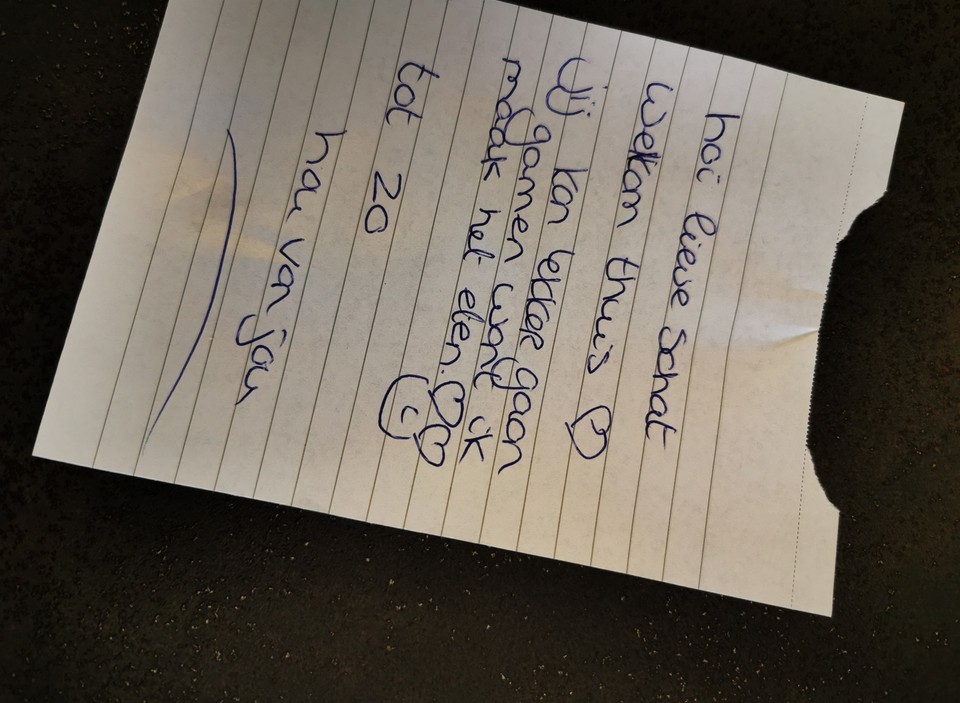 hoi lieve schat
welkom thuis ♡
Jij kan lekker gaan
gamen want ik
maak het eten. ♡♡
tot zo
hou van jou